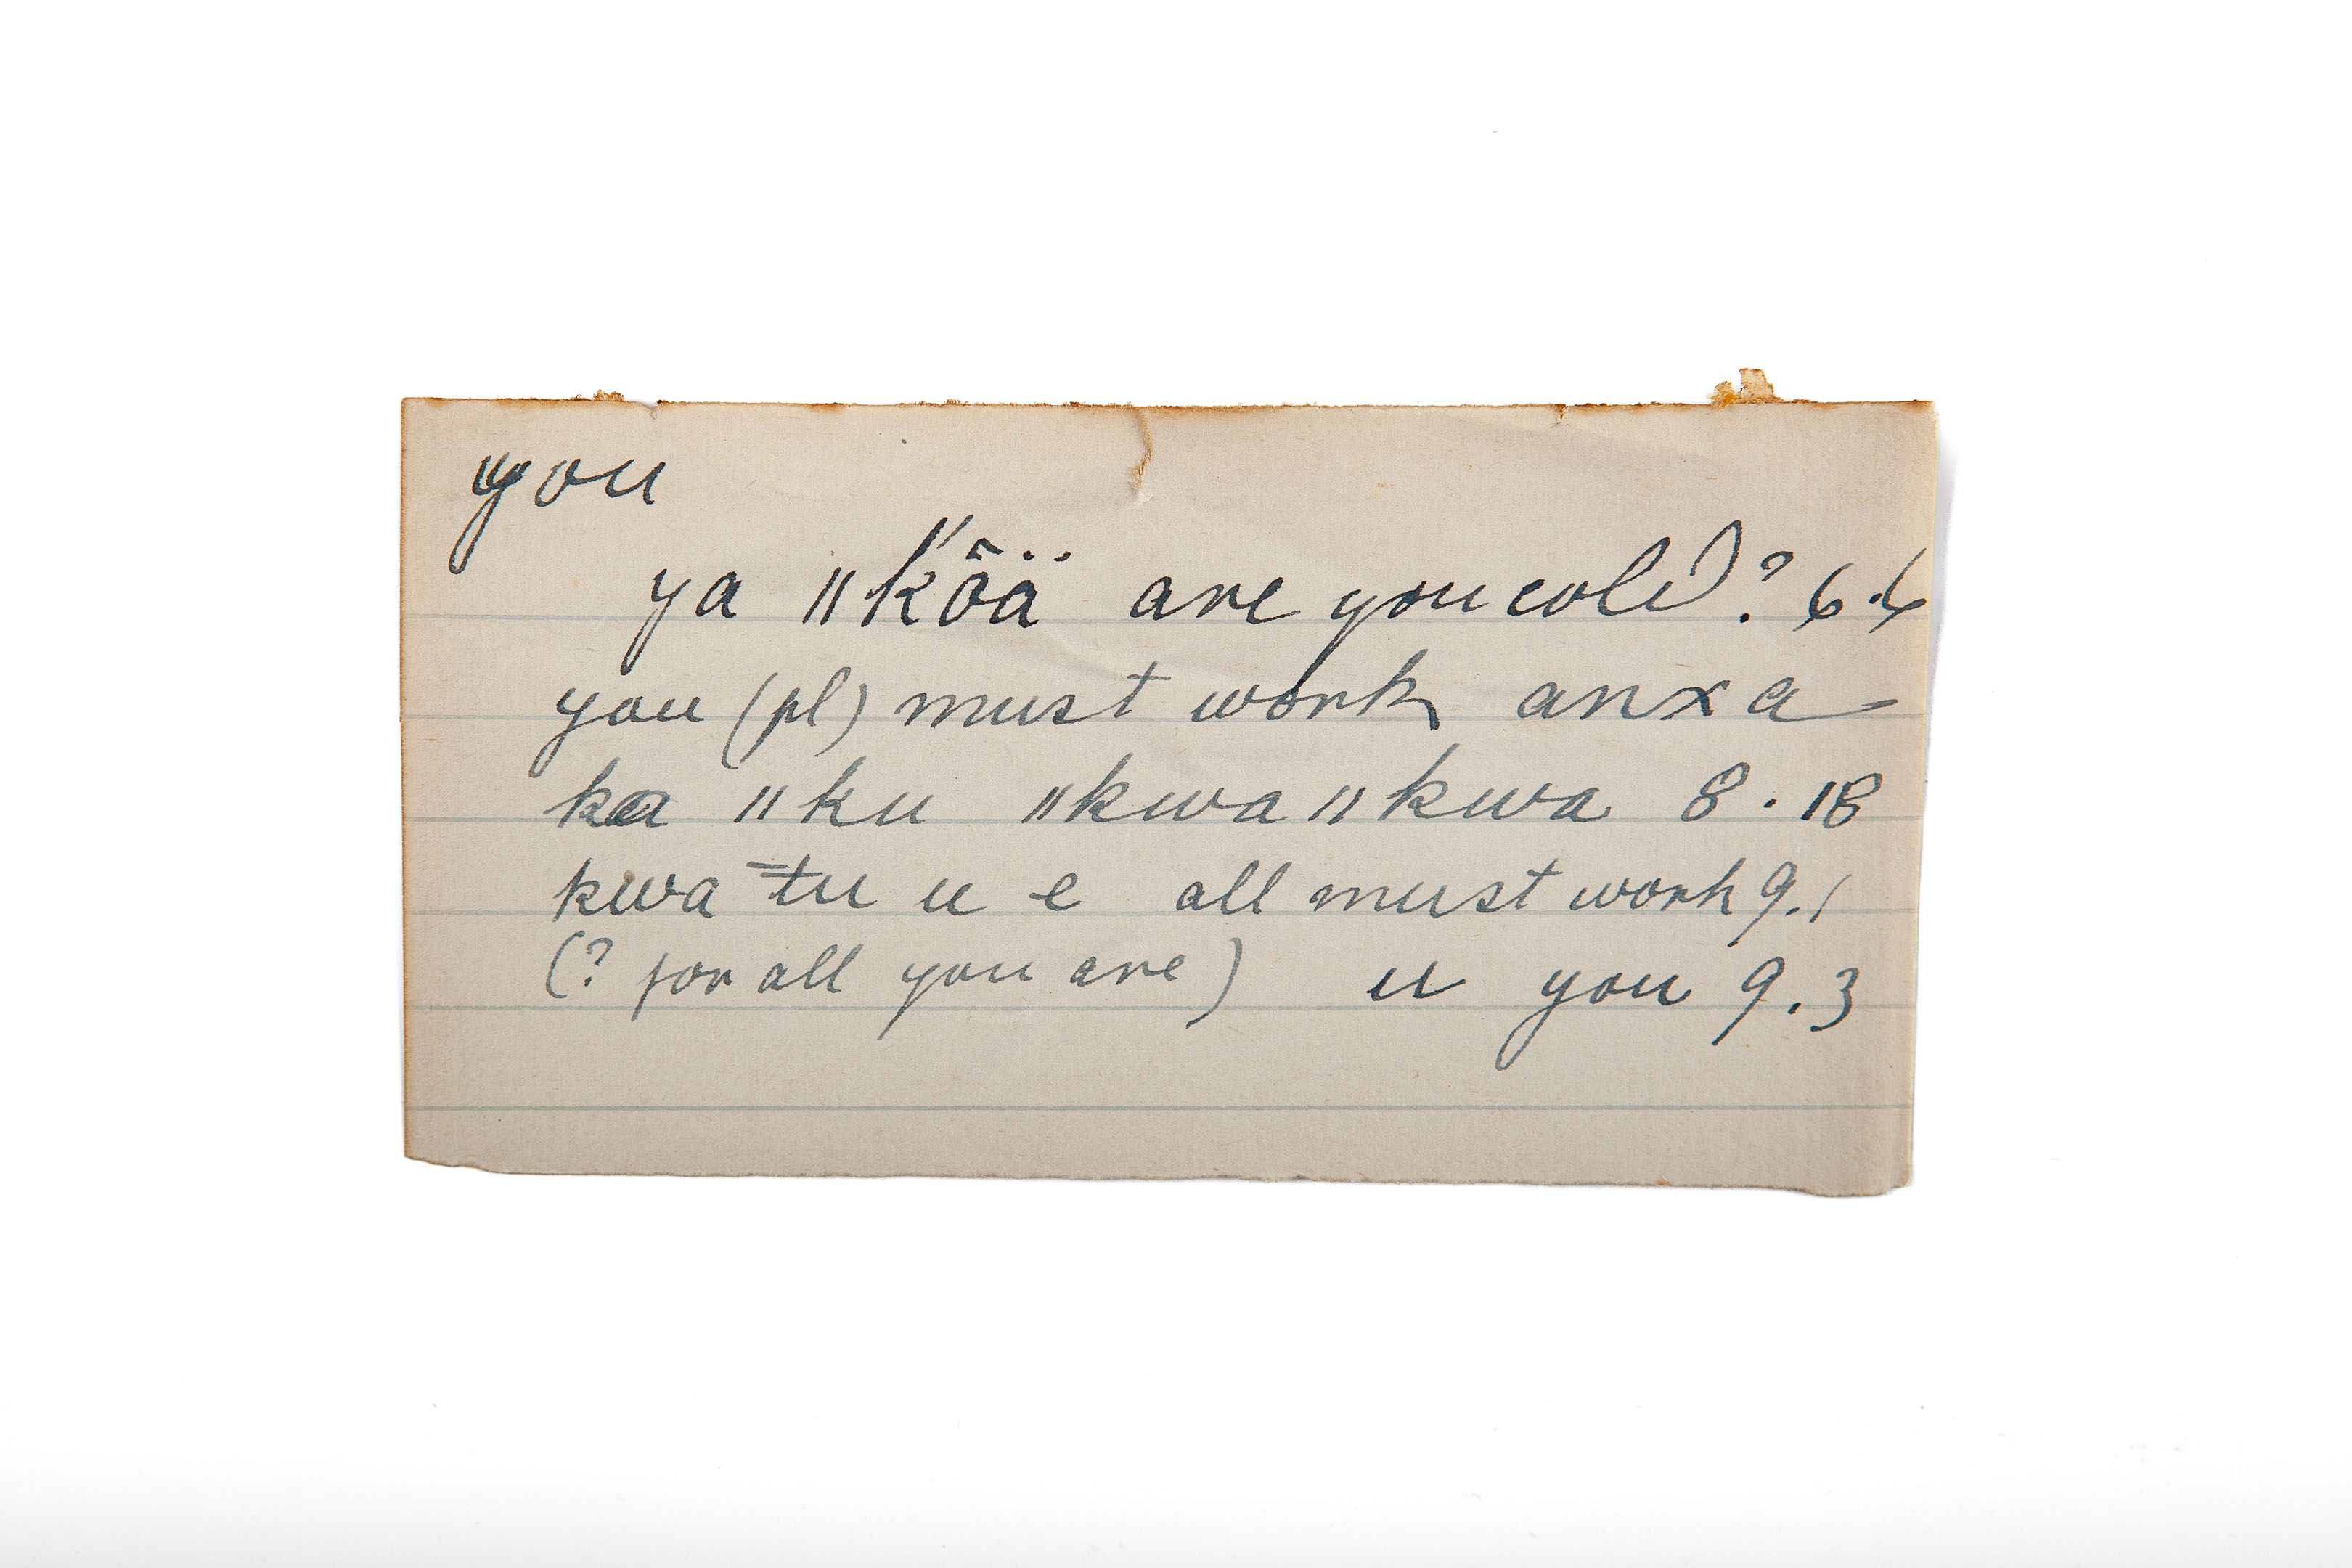 you
ya ǁk'õä are you cold? 6.6
you (pl) must work anxa
ka ǁku ǁkwa ǁkwa 8.18
kwa t̄u u e all must work 9.1
(? for all you are) u you 9.3